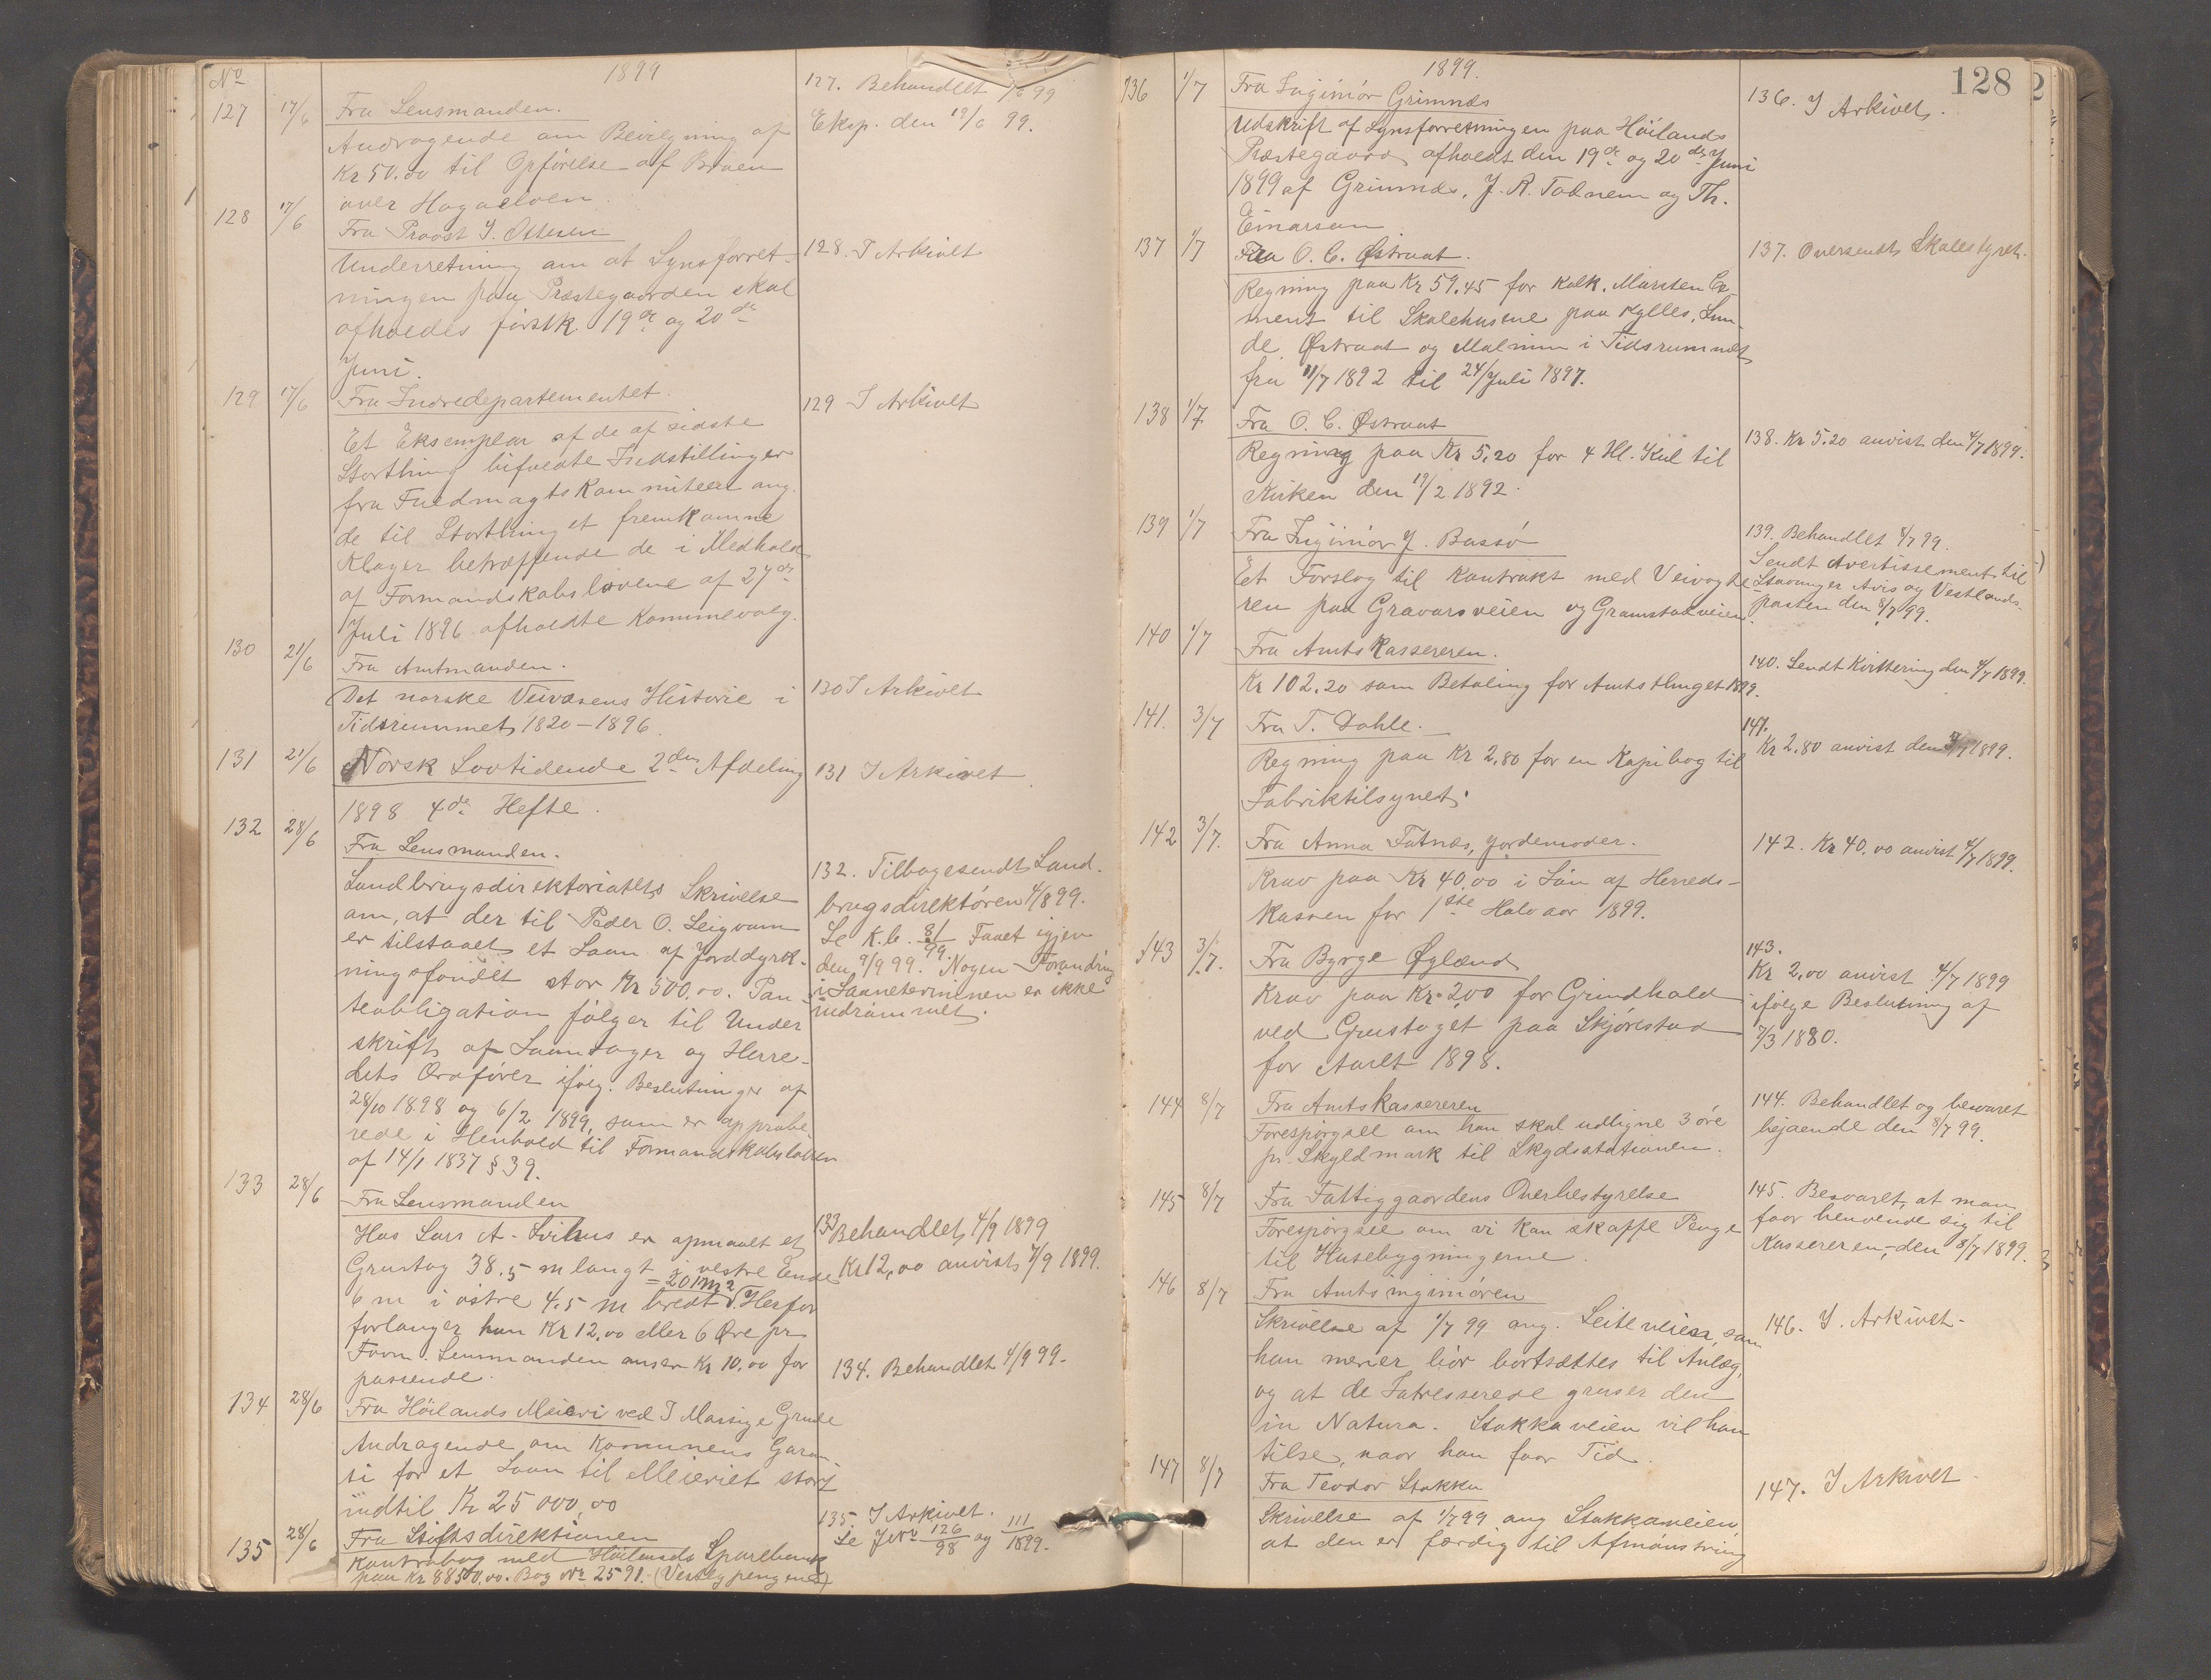 No
1899
127 17/6 Fra Lensmanden.
Andragende om Bevilgning af
Kr 50.00 til Opførelse af Broen
over Hagaelven.
127. Behandlet 99
Eksp. den 19/6 99.
128 17/6 Fra Provst J. Ottesen
Underretning om at Synsforret-
ningen paa Præstegaarden skal
afholdes førstk. 19de og 20de
Juni.
128. I Arkivet
129 17/6 Fra Indredepartementet.
Et Eksemplar af de af sidste
Storthing bifaldte Indstillinger
fra Fuldmagtskommiteen ang.
de til Storthinget fremkomne
Klager betræffende de i Medhold
af Formandskabslovene af 27de
Juli 1896 afholdte Kommevalg.
129 I Arkivet
130 21/6 Fra Amtmanden.
Det norske Veivæsens Historie i
Tidsrummet 1820-1896.
130 I Arkivet
131 21/6 Norsk Lovtidende 2den Afdeling
1898 4de Hefte.
131 I Arkivet
132 28/6 Fra Lensmanden.
Landbrugsdirektoriatets Skrivelse
om, at der til Peder O. Leigvam
er tilstaaet et Laan af Jorddyrk-
ningsfondet stor Kr 500,00. Pan-
teobligation følger til Under
skrift af Laantager og Herre-
dets Ordfører ifølg. Beslutninger af
28/10 1898 og 6/2 1899, som er approbe-
rede i Henhold til Formandskabsloven
af 14/1 1837 § 39.
132. Tilbagesendt Land-
brugsdirektøren 4/8 99.
Se K.b. 81/99. Faaet igjen
den 9/9 99. Nogen Forandring
i Laaneterminen er ikke
indrømmet.
133 28/6 Fra Lensmanden
Hos Lars A. Svihus er opmaalt et
Grustag 38.5 m langt i vestre Ende
6 m i østre 4.5 m bredt = 201 m2 Herfor
forlanger han Kr 12.00 eller 6 Øre pr
Favn. Lensmanden anser Kr 10.00 for
passende.
133 Behandlet 4/9 1899
Kr 12,00 anvist 7/9 1899.
134 28/6 Fra Høilands Meieri ved T Massige Grude
Andragende om Kommunens Garan-
ti for et Laan til Meieriet stort
indtil Kr 25 000,00
134. Behandlet 4/9 99.
135 28/6 Fra Stiftsdirektionen
Kontrabog med Høilands Sparebank
paa Kr 8850,00. Bog No 2591. (Vestly pengene)
135. I Arkivet.
Se JNo 126/98 og 111/1899.
128
1899.
136 1/7 Fra Inginiør Grimnæs
Udskrift af Synsforretningen paa Høilands
Præstegaard afholdt den 19de og 20de Juni
1899 af Grimnæs, J. R. Todnem og Th.
Einarsen
136. I Arkivet.
137 1/7 Fra O. C. Østraat.
Regning paa Kr 59.45 for Kalk, Mursten Ce-
ment til Skolehusene paa Kylles, Lun-
de, Østraat og Malmim i Tidsrummet
fra 11/7 1892 til 24/Juli 1897.
137. Oversendt Skolestyret.
138 1/7 Fra O. C. Østraat
Regning paa Kr 5.20 for 4 Hl. Kul til
Kirken den 19/2 1892.
138. Kr 5.20 anvist den 4/7 1899.
139 1/7 Fra Inginiør J. Bassø
Et Forslag til Kontrakt med Veivogte-
ren paa Gravarsveien og Gramstadveien.
139. Behandlet 8/7 99.
Sendt Avertissement til
Stavanger Avis og Vestlands-
posten den 8/7 99.
140 1/7 Fra Amtskassereren.
Kr 102.20 som Betaling for Amtsthinget 1899.
140. Sendt Kvittering den 4/7 1899.
141. 3/7 Fra T. Dahle.
Regning paa Kr 2.80 for en Kopibog til
Fabriktilsynet.
141.
Kr 2.80 anvist den 4/7 1899.
142 3/7. Fra Anna Tatnæs, Jordemoder.
Krav paa Kr 40.00 i Løn af Herreds-
kassen for 1ste Halvaar 1899.
142. Kr 40.00 anvist 4/7 1899.
143 3/7. Fra Byrge Øglænd
Krav paa Kr. 2,00 for Grindhold
ved Grustaget paa Skjørestad
for Aaret 1898.
143.
Kr 2,00 anvist 4/7 1899
ifølge Beslutning af
7/3 1880.
144 8/7 Fra Amtskassereren
Forespørgsel om han skal udligne 3 øre
pr. Skyldmark til Skydsstationen.
144. Behandlet og besvaret
bejaende den 8/7 99.
145 8/7 Fra Fattiggaardens Overbestyrelse
Forespørgsel om vi kan skaffe Penge
til Husebygningerne.
145. Besvaret, at man
faar henvende sig til
Kassereren, den 8/7 1899.
146 8/7 Fra Amtsinginiøren
Skrivelse af 1/7 99 ang. Leiteveien, som
han mener bør bortsættes til Anlæg,
og at de Intresserede gruser den
in Natura. Stokkaveien vil han
tilse, naar han faar Tid.
146. I. Arkivet.
147 8/7 Fra Teodor Stokka
Skrivelse af 1/7 99 ang Stokkaveien,
at den er færdig til Afmønstring
147. I Arkivet